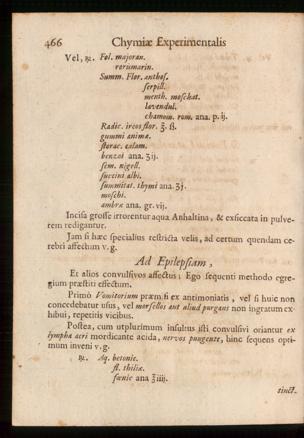 466 Chymiæ Experimentalis
Vel, ℞. Fol. majoran.
rorismarin.
Summ. Flor. anthos.
serpill.
menth. moschat.
lavendul.
chamom. rom. ana. p. ij.
Radic. ireos flor. ℥. ß.
gummi animæ.
storac. calam.
benzoi ana. ʒij.
sem. nigell.
succini albi.
summitat. thymi ana. ʒj.
moschi.
ambræ ana. gr. vij.
Incisa grosse irrorentur aqua Anhaltina, & exsiccata in pulve-
rem redigantur.
Jam si hæc specialius restricta velis, ad certum quendam ce-
rebri affectum v. g.
Ad Epilepsiam,
Et alios convulsivos affectus; Ego sequenti methodo egre-
gium præstiti effectum.
Primò Vomitorium præmisi ex antimoniatis, vel si huic non
concedebatur usus, vel morsellos aut aliud purgans non ingratum ex-
hibui, repetitis vicibus.
Postea, cum utplurimum insultus isti convulsivi oriantur ex
lympha acri mordicante acida, nervos pungente, hinc sequens opti-
mum inveni v. g.
℞. Aq. betonic.
fl. thiliæ.
fœnic ana ℥iiij.
tinct.